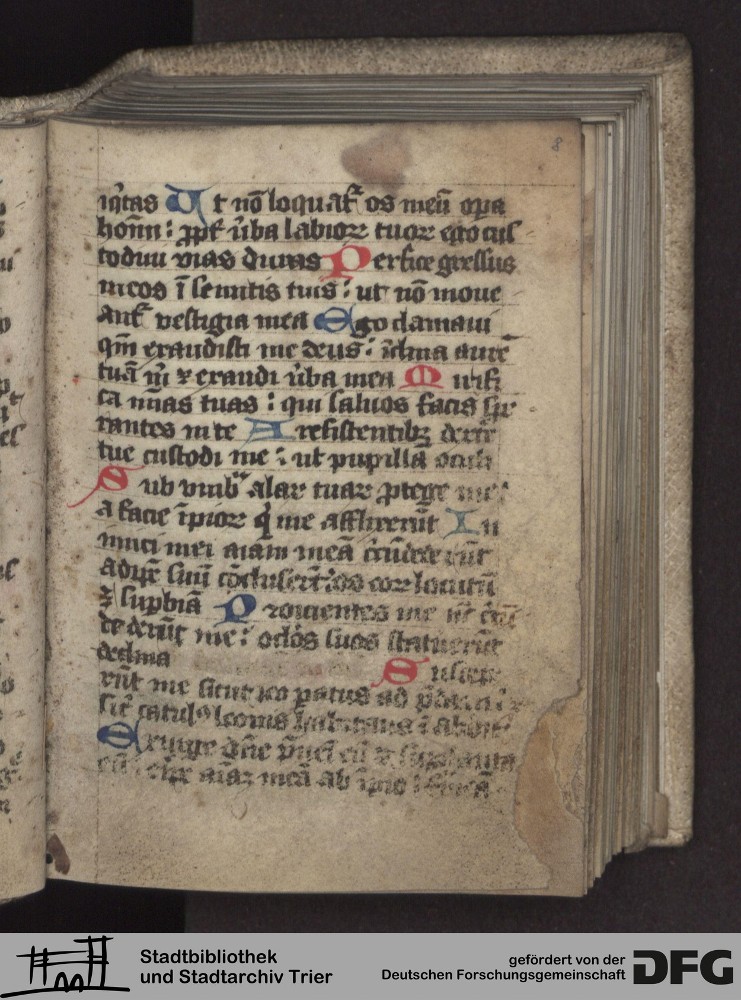 8
iq̅tas Ut no̅ loquat᷑ os meu̅ opa
ho̅m̅: ꝓpt᷑ v̅ba labioꝝ tuoꝝ ego cus
todiui vias duras Perfice gressus
meos i̅ semitis tuis: ut no̅ moue
ant᷑ vestigia mea Ego clamaui
qm̅ exaudisti me deus: i̅clina aure̅
tua̅ m̅ ⁊ exaudi v̅ba mea Mirifi
ca mias tuas: qui saluos facis spe
rantes in te A resistentibꝫ dexte
tue custodi me: ut pupilla̅ oculi
Sub vmb᷑ alaꝝ tuaꝝ ꝓtege me:
a facie i̅pioꝝ q̇ me afflixeru̅t In
imici mei aiam mea̅ circu̅dederu̅t
adipe̅ suu̅ co̅cluseru̅t: os eoꝝ locutu̅
e̅ supbia̅ Proicientes me nu̅c circu̅
dederu̅t me: oclos suos statueru̅t
declina
Suscepe
ru̅t me sicut leo patus ad p̅da
sic᷑ catulꝰ leonis habitans i̅ abdit᷑
Exurge dn̅e p̅ueni eu̅ ⁊ supplanta
eu̅: eripe aia̅ mea̅ ab i̅pio
Stadtbibliothek
und Stadtarchiv Trier
gefördert von der
Deutschen Forschungsgemeinschaft
DFG